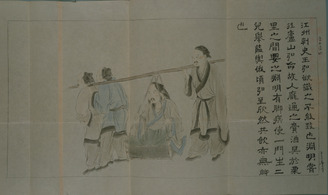 江州刺史王弘欲識之不能致也淵明嘗
往廬山弘命故人龐通之賫酒具於栗
里之間要之淵明有腳疾使一門生二
兒舉籃輿俄頃弘至欣然共飲亦無
也